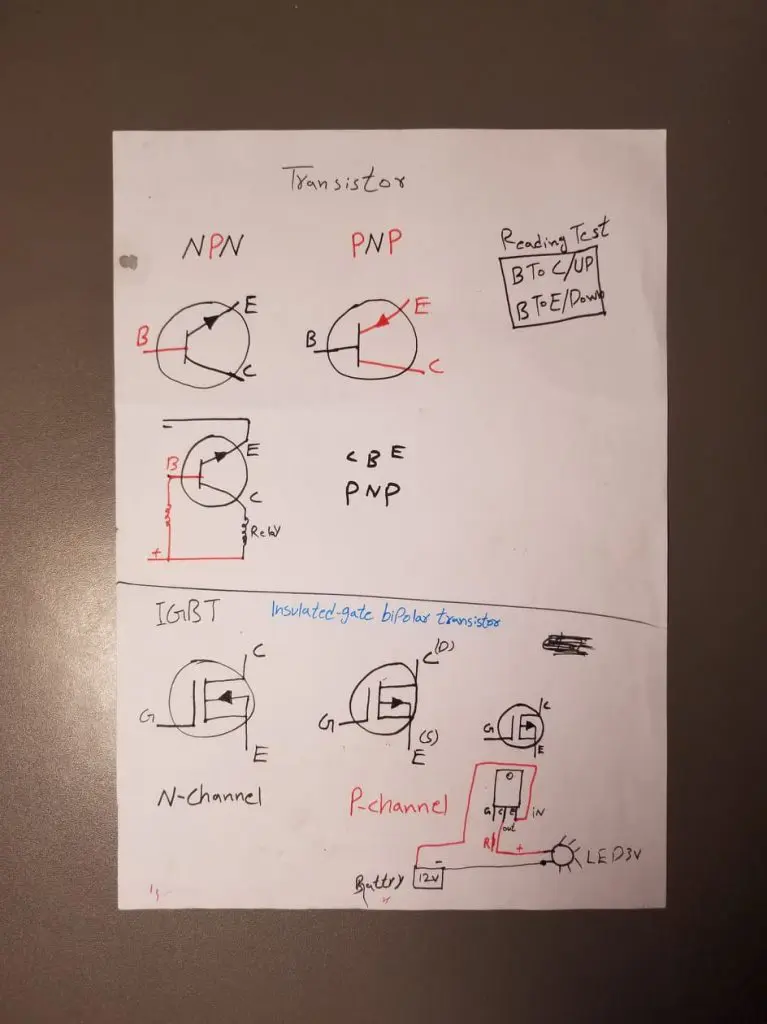 Transistor
NPN
PNP
Reading Test
B To C/UP
B To E/Down
B
E
C
B
E
C
−
B
E
C
Relay
+
C B E
PNP
IGBT
Insulated-gate bipolar transistor
G
C
E
N-Channel
G
C(D)
(S)
E
P-channel
G
C
E
G C E
iN
out
R
+
−
12V
Battry
LED3V